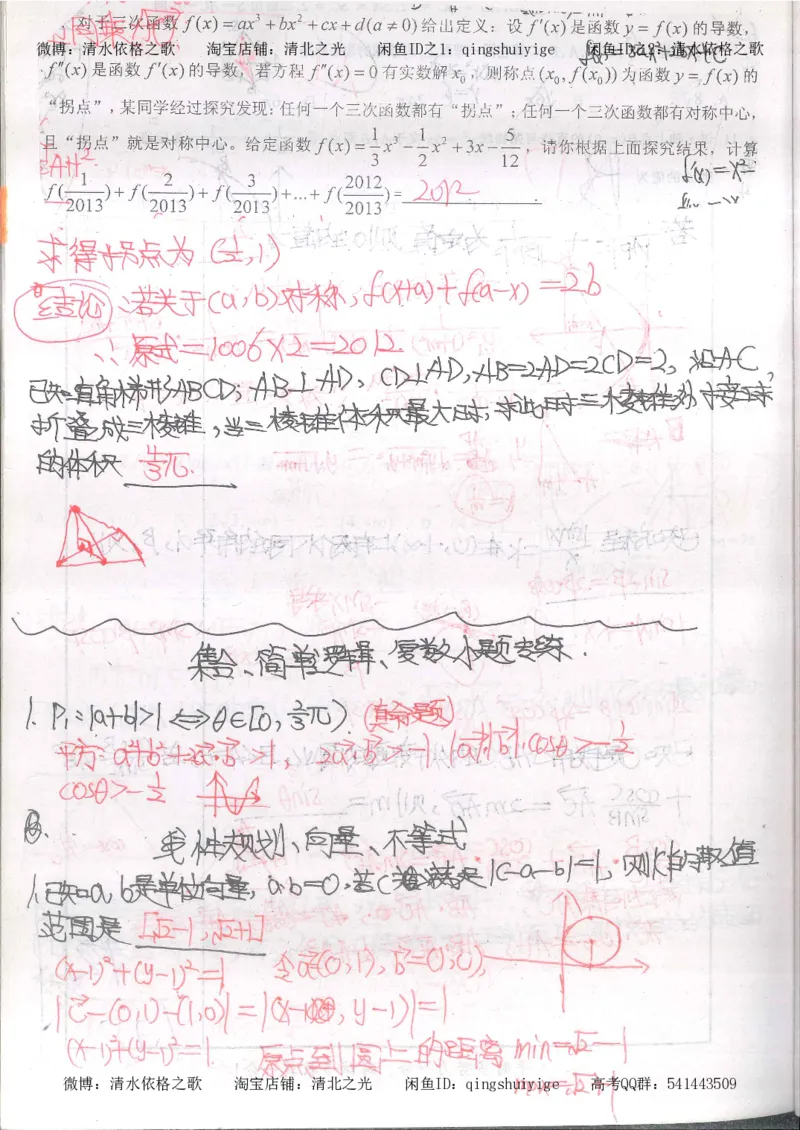 对于三次函数 f(x)=ax³+bx²+cx+d(a≠0)给出定义：设 f′(x) 是函数 y=f(x) 的导数，
微博：清水依格之歌 淘宝店铺：清北之光 闲鱼ID之1：qingshuiyige 闲鱼ID之2：清水依格之歌
f″(x) 是函数 f′(x) 的导数，若方程 f″(x)=0 有实数解 x₀，则称点 (x₀, f(x₀)) 为函数 y=f(x) 的
“拐点”，某同学经过探究发现：任何一个三次函数都有“拐点”；任何一个三次函数都有对称中心，
且“拐点”就是对称中心。给定函数 f(x)=1/3x³-1/2x²+3x-5/12，请你根据上面探究结果，计算
f(1/2013)+f(2/2013)+f(3/2013)+...+f(2012/2013)= 2012 .
求得拐点为 (1/2,1)
结论：若关于(a,b)对称，f(x+a)+f(a-x)=2b
∴原式=1006×2=2012
已知直角梯形ABCD，AB⊥AD，CD⊥AD，AB=2AD=2CD=2，沿AC
折叠成三棱锥，当三棱锥体积最大时，求此时三棱锥外接球
的体积 4/3π.
集合、简单逻辑、复数小题专练.
1. P₁：|a+b|>1⇔θ∈[0, 2/3π). (真命题)
平方：a²+b²+2a·b>1, 2a·b>-1 |a|·|b|·cosθ>-1/2
cosθ>-1/2
线性规划、向量、不等式
1.已知a,b是单位向量，a·b=0.若c满足|c-a-b|=1，则|c|的取值
范围是 [√2-1,√2+1]
(x-1)²+(y-1)²=1 令a=(0,1), b=(1,0),
|c-(0,1)-(1,0)|=|(x-1, y-1)|=1
(x-1)²+(y-1)²=1. 原点到圆上的距离 min=√2-1
max=√2+1
微博：清水依格之歌 淘宝店铺：清北之光 闲鱼ID：qingshuiyige 高考QQ群：541443509